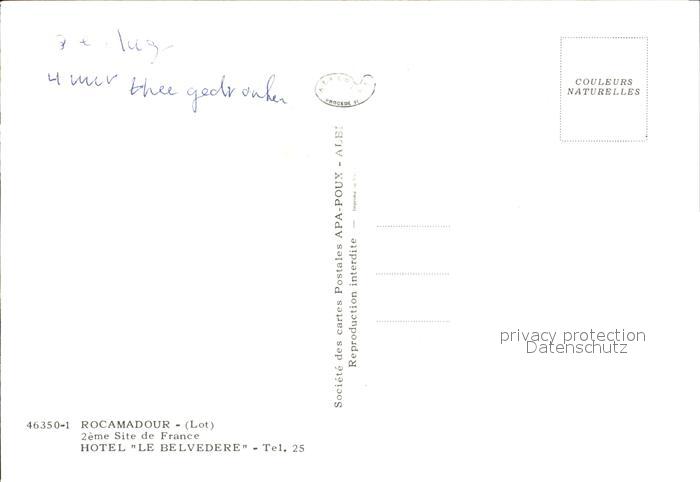 4 uur thee gedronken
COULEURS
NATURELLES
Société des cartes Postales APA-POUX - ALBI
Reproduction interdite —
privacy protection
Datenschutz
46350-1 ROCAMADOUR - (Lot)
2ème Site de France
HOTEL "LE BELVEDERE" - Tel. 25